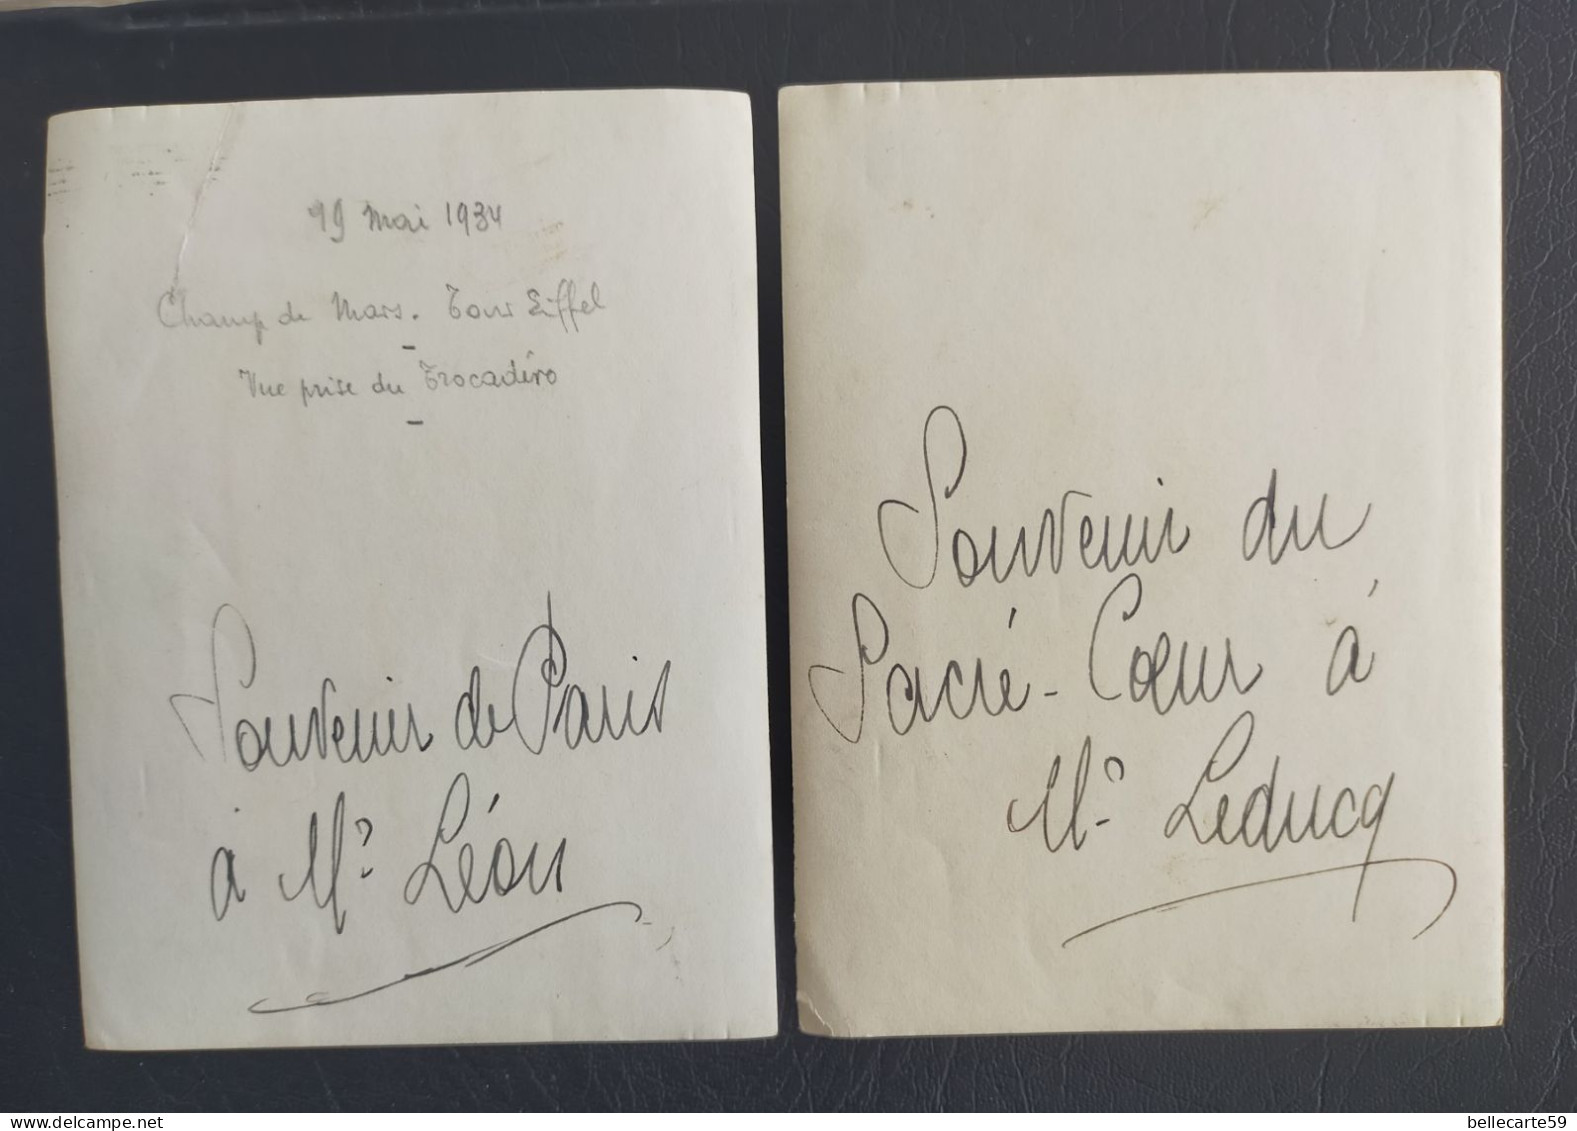 19 Mai 1934
Champ de Mars. Tour Eiffel
-
Vue prise du Trocadéro
-
Souvenir de Paris
à Mr Léon
Souvenir du
Sacré-Cœur à
Mr Leducq
bellecarte59